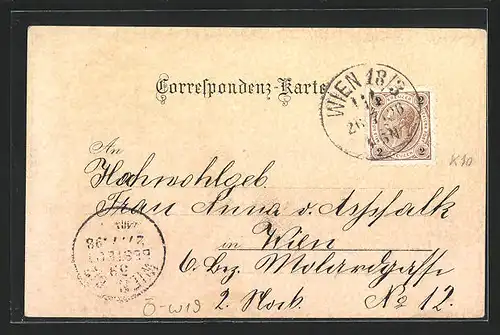 Correspondenz-Karte
WIEN 18/3
2 2
2 2
K30
An
Hochwohlgeb.
Frau Anna v. Aschphalk
in Wien
6. Bez. Molardgasse
2. Stock. No 12.
WIEN
BESTELLT
27.7.98
Ö-W19